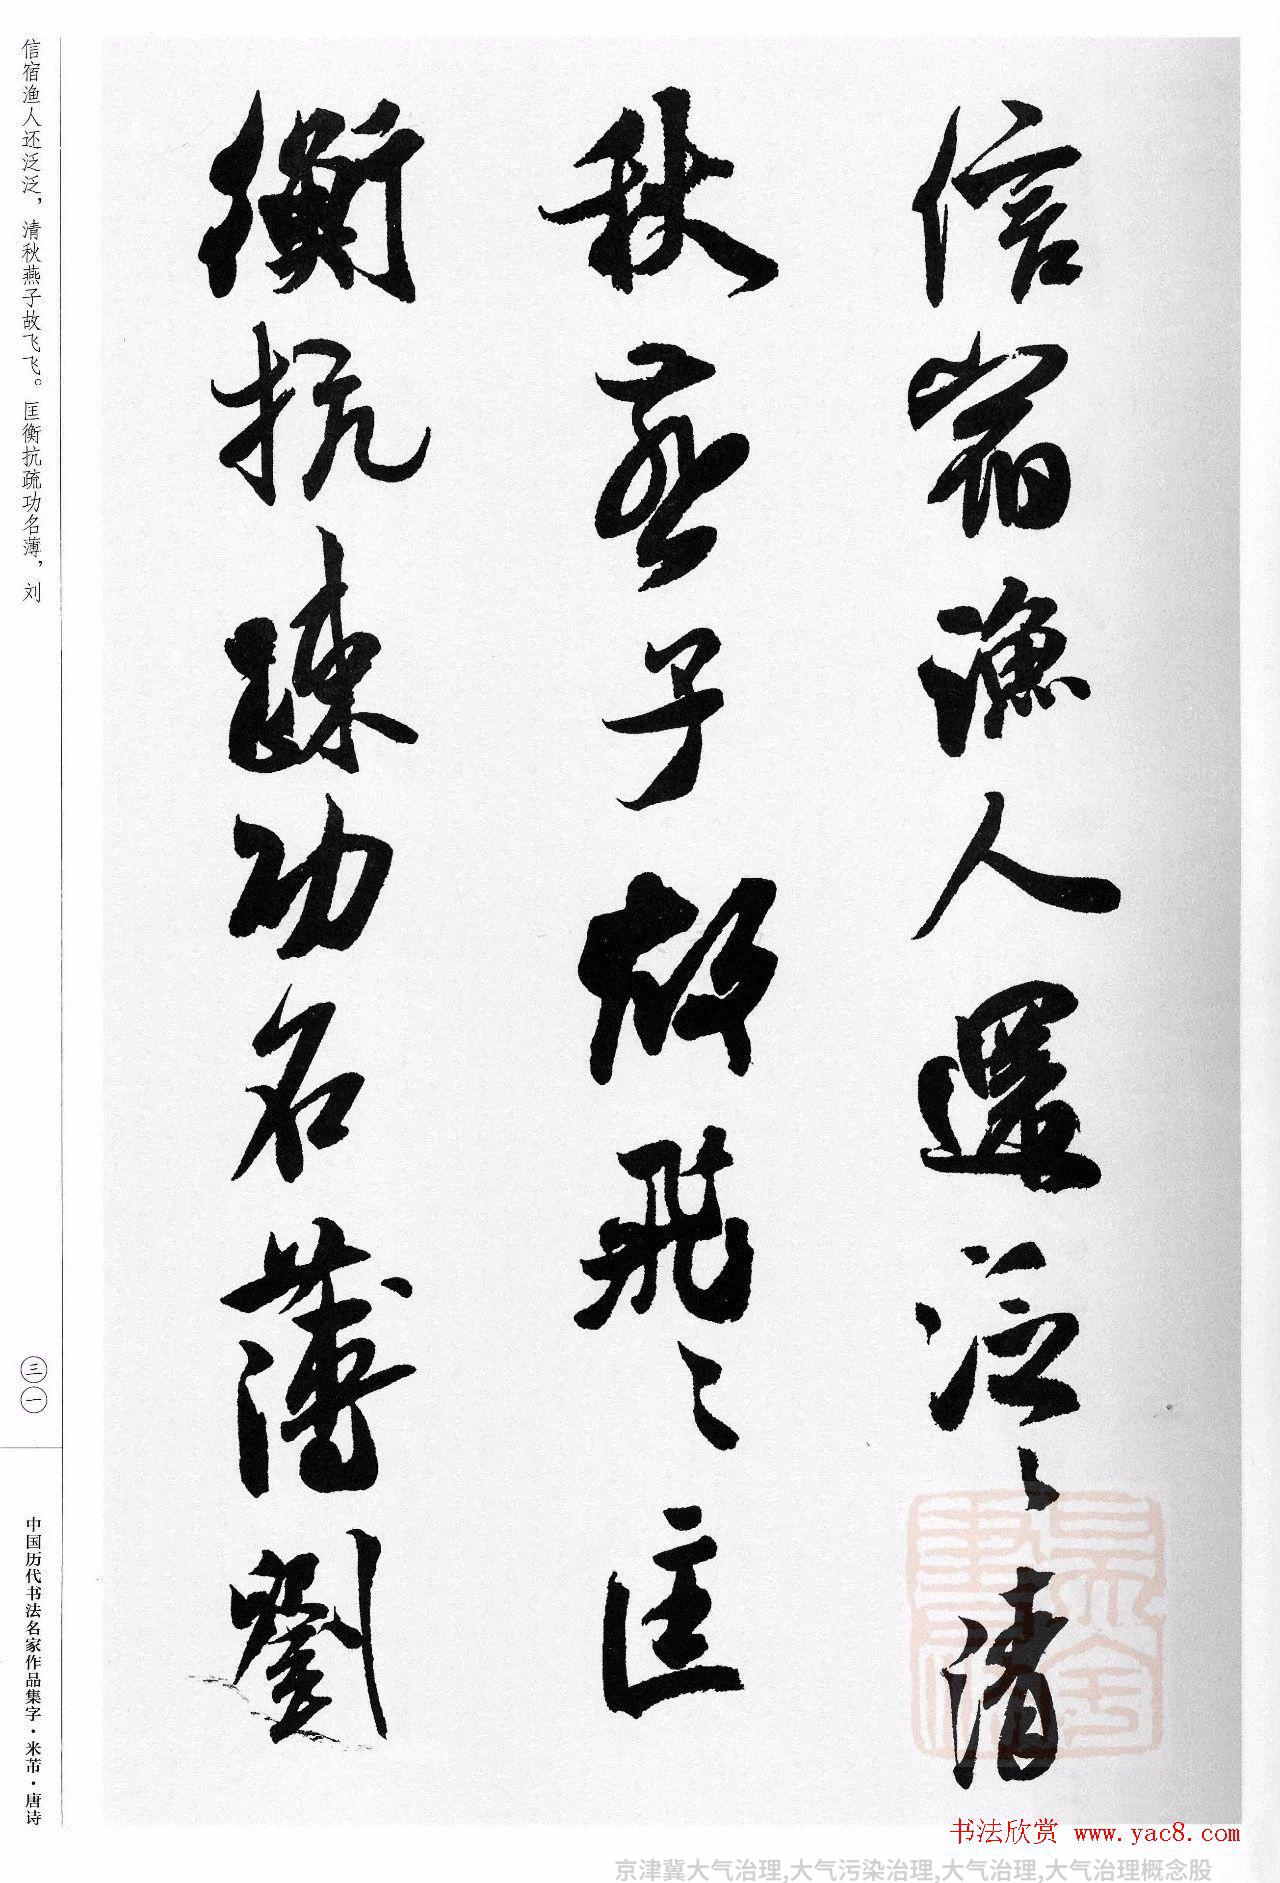 信宿漁人還泛〻清
秋燕子故飛〻匡
衡抗疏功名薄劉
信宿渔人还泛泛，清秋燕子故飞飞。匡衡抗疏功名薄，刘
三一
中国历代书法名家作品集字·米芾·唐诗
书法欣赏 www.yac8.com
京津冀大气治理,大气污染治理,大气治理,大气治理概念股